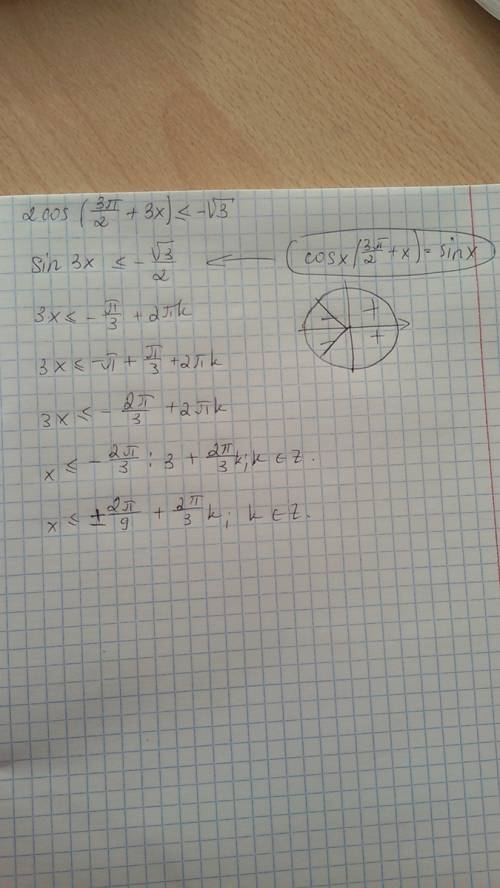 2cos(3π/2 + 3x) ≤ -√3
sin 3x ≤ -√3/2 ← (cosx(3π/2 + x) = sinx)
3x ≤ -π/3 + 2πk
3x ≤ -π + π/3 + 2πk
3x ≤ -2π/3 + 2πk
x ≤ -2π/3 : 3 + 2π/3 k; k ∈ Z.
x ≤ ± 2π/9 + 2π/3 k; k ∈ Z.
- +
- +